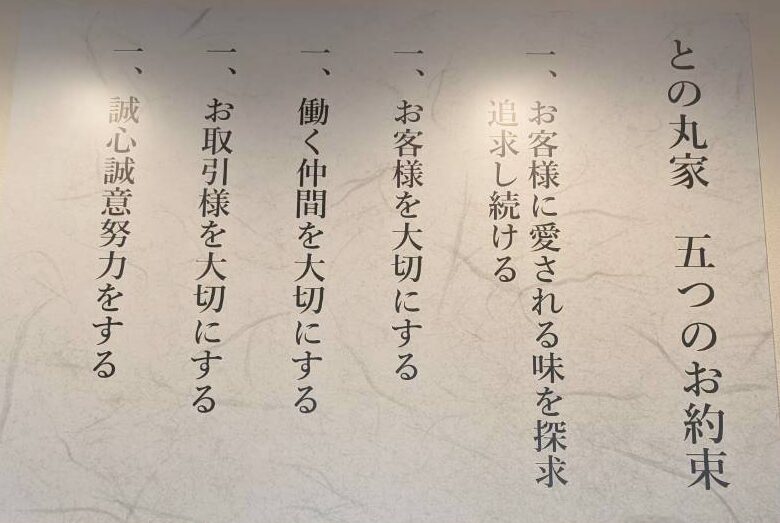 との丸家　五つのお約束
一、お客様に愛される味を探求
追求し続ける
一、お客様を大切にする
一、働く仲間を大切にする
一、お取引様を大切にする
一、誠心誠意努力をする